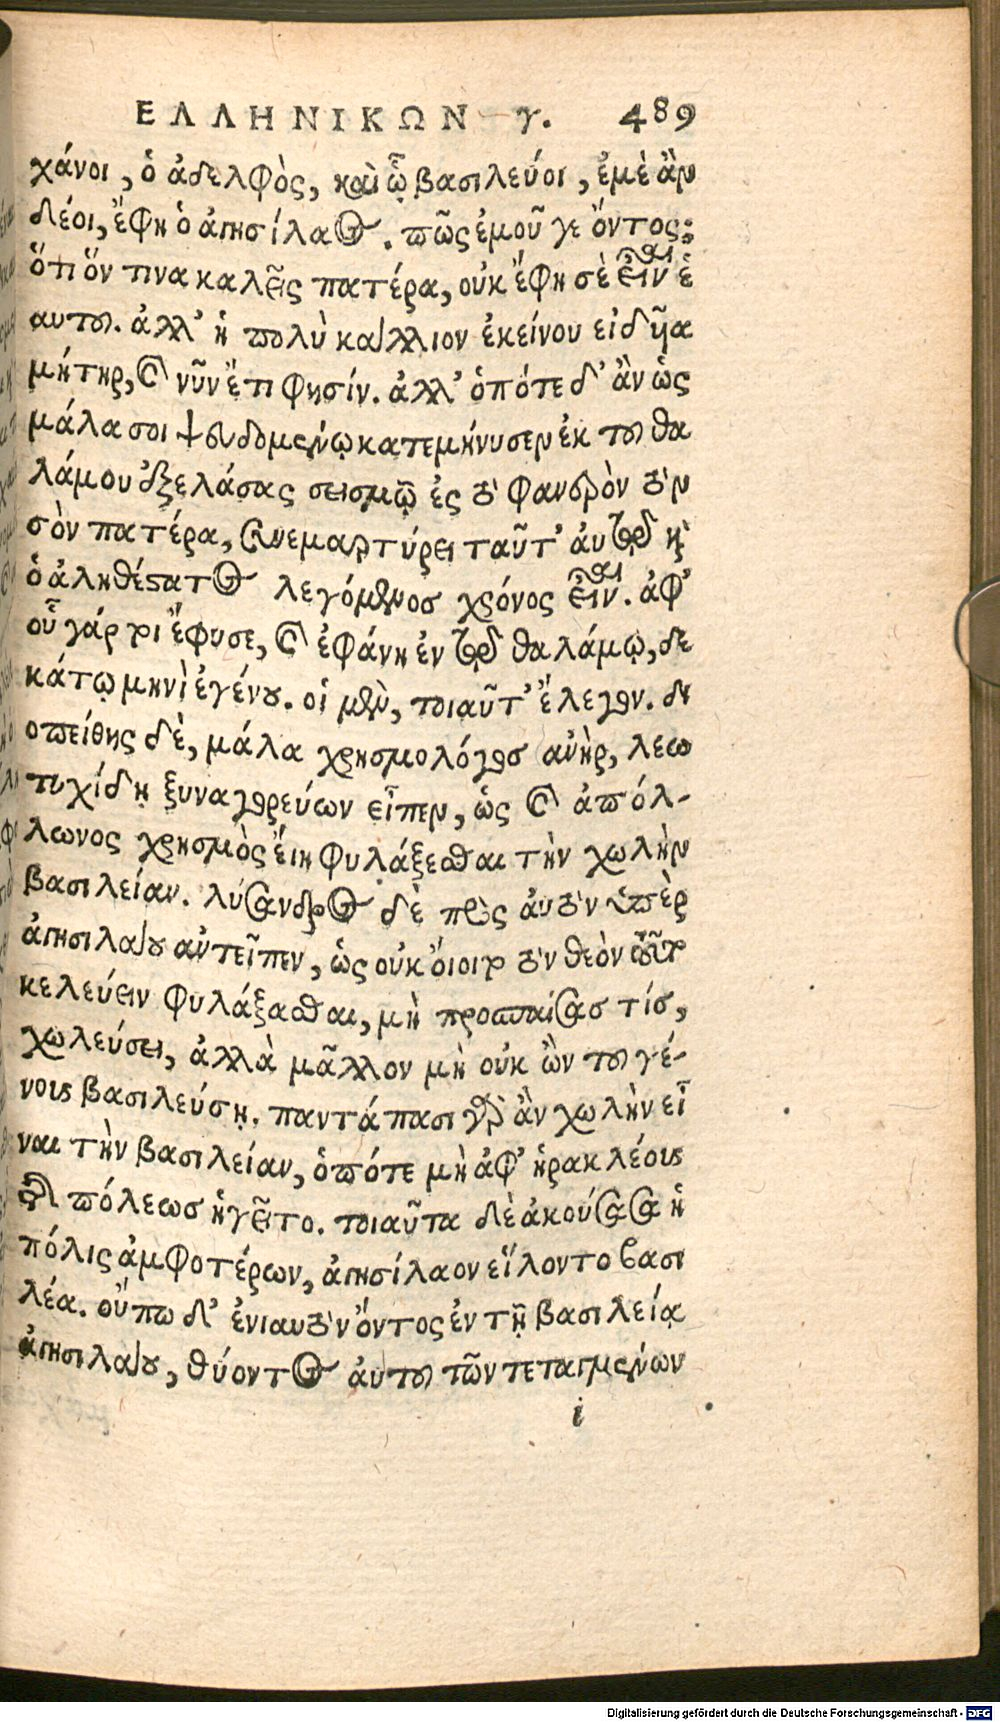 ΕΛΛΗΝΙΚΩΝ γ. 489
χάνοι, ὁ ἀδελφὸς, καὶ ὧ βασιλεύοι, ἐμὲ ἂν
δέοι, ἔφη ὁ ἀγησίλαος. πῶς ἐμοῦ γε ὄντος;
ὅτι ὅν τινα καλεῖς πατέρα, οὐκ ἔφη σὲ εἶναι ἑ
αυτοῦ. ἀλλ' ἡ πολὺ κάλλιον ἐκείνου εἰδῆα
μήτηρ, καὶ νῦν ἔτι φησίν. ἀλλ' ὁπότε δ' ἂν ὡς
μάλα σοι ψευδομένῳ κατεμήνυσεν ἐκ τοῦ θα
λάμου ἐξελάσας σεισμῷ ἐς τὸ φανερὸν τὸν
σὸν πατέρα, συνεμαρτύρει ταῦτ' αὐτῷ κὶ
ὁ ἀληθέστατος λεγόμενος χρόνος εἶναι. ἀφ'
οὗ γάρ τοι ἔφυσε, καὶ ἐφάνη ἐν τῷ θαλάμῳ, δε
κάτῳ μηνὶ ἐγένου. οἱ μὲν, τοιαῦτ' ἔλεγον. δι
οπείθης δὲ, μάλα χρησμολόγος ἀνὴρ, λεω
τυχίδῃ ξυναγορεύων εἶπεν, ὡς καὶ ἀπόλ-
λωνος χρησμὸς ἔιη φυλάξεσθαι τὴν χωλὴν
βασιλείαν. λύσανδρος δὲ πρὸς αὐτὸν ὑπὲρ
ἀγησιλάου ἀντεῖπεν, ὡς οὐκ ὄιοιτο τὸν θεὸν τοῦτο
κελεύειν φυλάξασθαι, μὴ προσπαίσας τίσ,
χωλεύσει, ἀλλὰ μᾶλλον μὴ οὐκ ὢν τοῦ γέ-
νους βασιλεύσῃ. παντάπασι γὰρ ἂν χωλὴν εἶ
ναι τὴν βασιλείαν, ὁπότε μὴ ἀφ' ἡρακλέους
τῆς πόλεωσ ἡγεῖτο. τοιαῦτα δὲ ἀκούσασα ἡ
πόλις ἀμφοτέρων, ἀγησίλαον εἵλοντο βασι
λέα. οὔπω δ' ἐνιαυτὸν ὄντος ἐν τῇ βασιλείᾳ
ἀγησιλάου, θύοντος αὐτοῦ τῶν τεταγμένων
i
Digitalisierung gefördert durch die Deutsche Forschungsgemeinschaft - DFG